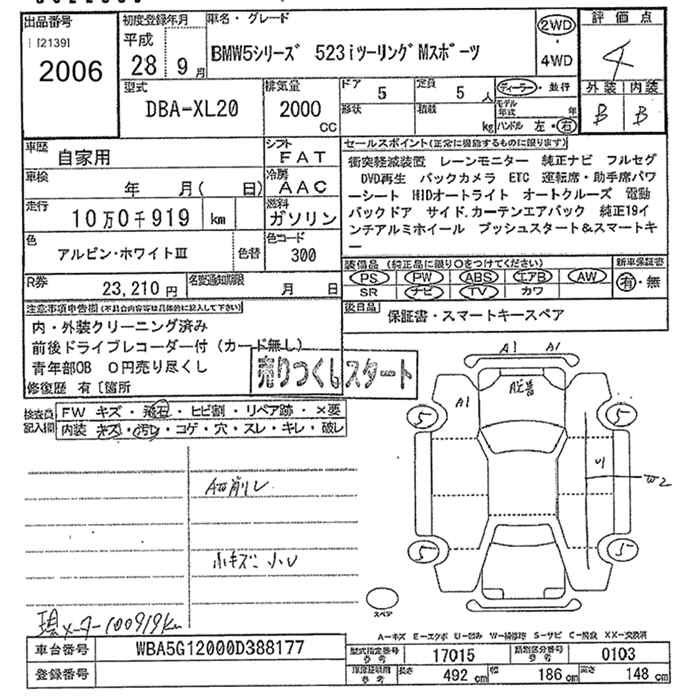 出品番号
[2139]
2006
初度登録年月
平成
28 9月
車名・グレード
BMW5シリーズ 523iツーリングMスポーツ
2WD
・
4WD
評価点
4
外装 内装
B B
型式
DBA-XL20
排気量
2000
CC
ドア
5
定員
5 人
形状
積載
kg
ディーラー・並行
モデル年式 年
ハンドル 左・右
車歴
自家用
シフト
FAT
車検
年 月( 日)
冷房
AAC
走行
10万0千919 km
燃料
ガソリン
色
アルピン・ホワイトⅢ
色替
色コード
300
R券
23,210円
名変通知期限
月 日
セールスポイント(正常に機能するものに限ります)
衝突軽減装置 レーンモニター 純正ナビ フルセグ
DVD再生 バックカメラ ETC 運転席・助手席パワ
ーシート HIDオートライト オートクルーズ 電動
バックドア サイド.カーテンエアバック 純正19イ
ンチアルミホイール プッシュスタート&スマートキ
ー
装備品(純正品に限り〇をつけてください)
新車保証書
PS PW ABS エアB AW
SR ナビ TV カワ
有・無
後日品
保証書・スマートキースペア
注意事項申告欄(不具合内容等は具体的に記入して下さい)
内・外装クリーニング済み
前後ドライブレコーダー付(カード無し)
青年部OB 0円売り尽くし
修復歴 有〔箇所
売りつくしスタート
検査員記入欄
FW キズ・飛石・ヒビ割・リペア跡・×要
内装 キズ・汚レ・コゲ・穴・スレ・キレ・破レ
A1 A1
A1
5 5
U1
W2
5 5
スペア
小キズ 小U
現メーター100919km
A-キズ E-エクボ U-凹み W-補修跡 S-サビ C-腐食 XX-交換済
車台番号
WBA5G12000D388177
登録番号
型式指定番号
参考
17015
類別区分番号
参考
0103
参考
長さ
492 cm
幅
186 cm
高さ
148 cm